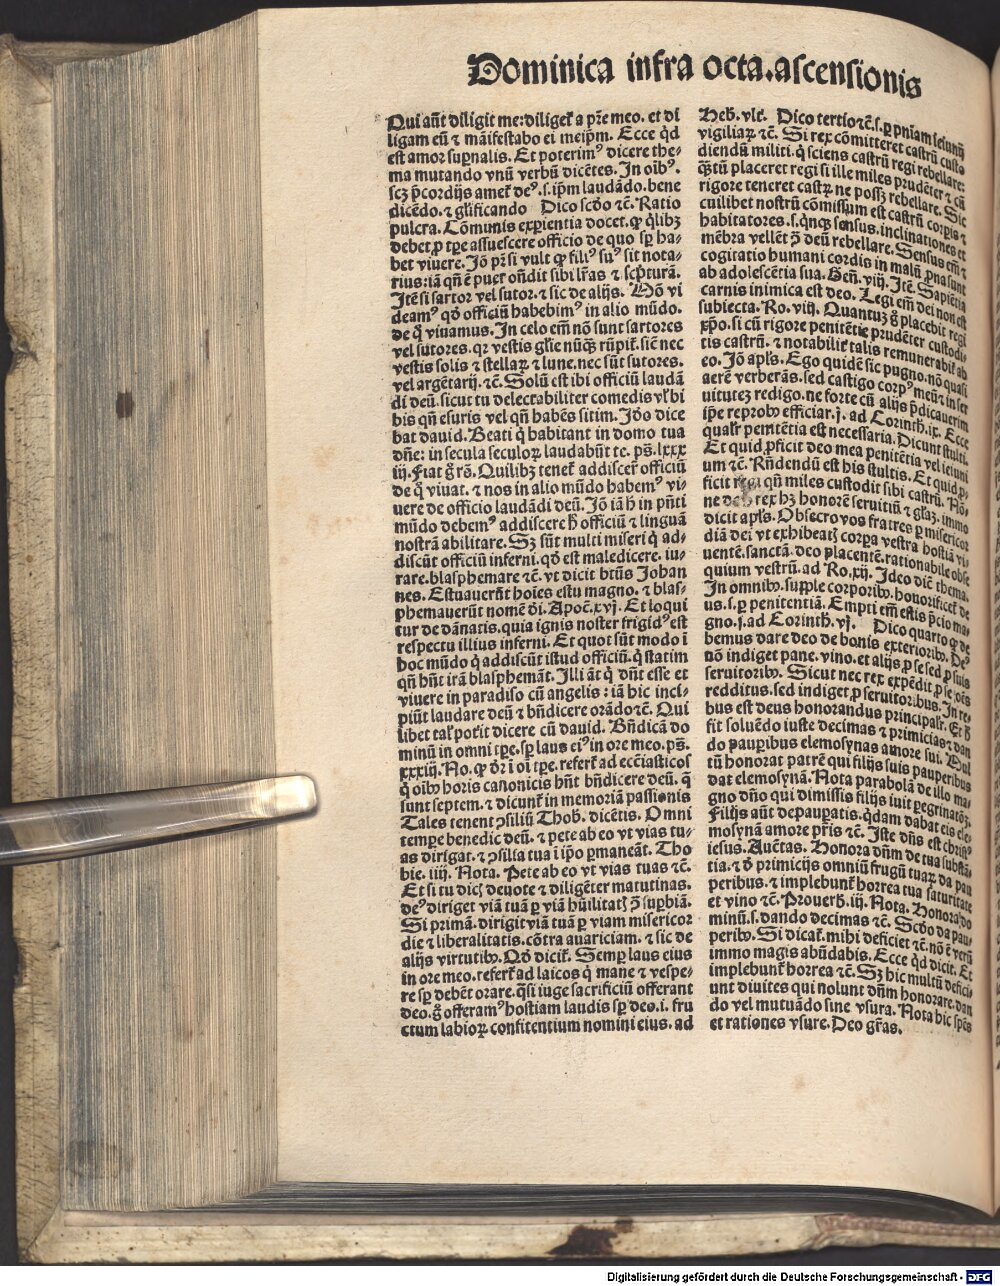 Dominica infra octa.ascensionis
Qui aūt diligit me:diliget̄ a pr̄e meo. et di
ligam eū ⁊ māifestabo ei meip̄m. Ecce qd̄
est amor sup̄nalis. Et poterimꝰ dicere the-
ma mutando vnū verbū dicētes. In oībꝰ.
scꝫ p̄cordijs amet̄ deꝰ.s.ip̄m laudādo.bene
dicēdo.⁊ gl̄ificando Dico scd̄o ⁊c̄. Ratio
pulcra. Cōmunis exꝑientia docet. ꝙ q̄libꝫ
debet ꝓ tꝑe assuescere officio de quo sꝑ ha-
bet viuere. Jō pr̄ si vult ꝙ filiꝰ suꝰ sit nota-
rius:iā qn̄ ē puer on̄dit sibi lr̄as ⁊ sc̄pturā.
Jtē si sartor vel sutor.⁊ sic de alijs. Mō vi
deamꝰ qd̄ officiū habebimꝰ in alio mūdo.
de q̄ viuamus. In celo em̄ nō sunt sartores
vel sutores. qꝛ vestis gl̄ie nūqꝫ rūpit̄. siē nec
vestis solis ⁊ stellaꝝ ⁊ lune.nec sūt sutores.
vel argētarij.⁊c̄. Solū est ibi officiū laudā
di deū.sicut tu delectabiliter comedis vl̓ bi
bis qn̄ esuris vel qn̄ habēs sitim. Jdōs dice
bat dauid. Beati q̄ habitant in domo tua
dn̄e: in secula seculoꝝ laudabūt te. ps̄.lxxx
iij. Fiat ḡ rō. Quilibꝫ tenet̄ addiscer̄ officiū
de q̄ viuat. ⁊ nos in alio mūdo habemꝰ vi-
uere de officio laudādi deū. Jō iā h̄ in pn̄ti
mūdo debemꝰ addiscere h̄ officiū ⁊ linguā
nostrā abilitare. Sꝫ sūt multi miseri q̄ ad-
discūt officiū inferni. qd̄ est maledicere. iu-
rare.blasphemare ⁊c̄. vt dicit btūs Johan
nes. Estuauerūt hoīes estu magno. ⁊ blas-
phemauerūt nomē dei. Apoc̄.xvj. Et loqui
tur de dānatis. quia ignis noster frigidꝰ est
respectu illius inferni. Et quot sūt modo ī
hoc mūdo q̄ addiscūt istud officiū. q̄ statim
qn̄ hn̄t irā blasphemāt. Illi āt q̄ dn̄t esse et
viuere in paradiso cū angelis : iā hic inci-
piūt laudare deū ⁊ bn̄dicere orādo ⁊c̄. Qui
libet tal̓ potit dicere cū dauid. Bn̄dicā do
minū in omni tꝑe. sꝑ laus eiꝰ in ore meo. ps̄.
xxxiij. No. ꝙ dr̄ ī oī tꝑe. refert̄ ad eccīasticos
q̄ oībꝰ horis canonicis hn̄t bn̄dicere deū. q̄
sunt septem. ⁊ dicunt̄ in memoriā passionis
Tales tenent ꝯsiliū Thob. dicētis. Omni
tempe benedic deū. ⁊ pete ab eo vt vias tu-
as dirigat. ⁊ ꝯsilia tua ī ip̄o ꝑmaneāt. Tho
bie. iiij. Nota. Pete ab eo vt vias tuas ⁊c̄.
Et si tu dicꝫ deuote ⁊ diligēter matutinas.
deꝰ diriget viā tuā ꝑ viā hūilitatꝫ ꝯ̄ suꝑbiā.
Si primā.dirigit viā tuā ꝑ viam misericor
die ⁊ liberalitatis. cōtra auariciam. ⁊ sic de
alijs virtutibꝰ. Qd̄ dicit̄. Semꝑ laus eius
in ore meo. refert̄ ad laicos q̄ mane ⁊ vespe-
re sꝑ debēt orare. qsi iuge sacrificiū offerant
deo. ḡ offeramꝰ hostiam laudis sꝑ deo. i. fru
ctum labioꝝ confitentium nomini eius. ad
Heb. vlt̄. Dico tertio ⁊c̄.s.ꝑ pn̄iam ieiunij
vigiliaꝝ ⁊c̄. Si rex cōmitteret castrū custo
diendū militi. q̄ sciens castrū regi rebellare:
qꝫtū placeret regi si ille miles prudēter ⁊ cū
rigore teneret castꝝ ne possꝫ rebellare. Sic
cuilibet nostrū cōmissum est castrū corꝑis ⁊
habitatores. s. qnqꝫ sensus. inclinationes et
mēbra vellēt ꝯ̄ deū rebellare. Sensus em̄ ⁊
cogitatio humani cordis in malū ꝓna sunt
ab adolescētia sua. Gen̄. viij. Jtē. Sapiētia
carnis inimica est deo. Legi em̄ dei non est
subiecta. Ro. viij. Quantuꝫ ḡ placebit regi
xp̄o. si cū rigore penitētie prudēter custodi-
tis castrū. ⁊ notabilit̄ talis remunerabit̄ ab
eo. Jō apl̄s. Ego quidē sic pugno. nō quasi
aerē verberās. sed castigo corpꝰ meū ⁊ in ser
uitutē redigo. ne forte cū alijs p̄dicauerim
ip̄e reprobꝰ efficiar. j. ad Corinth. ix. Ecce
qualr̄ penitētia est necessaria. Dicunt stulti.
Et quid ꝓficit deo mea penitētia vel ieiuni
um ⁊c̄. Rn̄dendū est his stultis. Et quid ꝓ-
ficit regi qn̄ miles custodit sibi castrū. Nō-
ne rex hꝫ honorē seruitiū ⁊ gl̄aꝫ. immo
dicit apl̄s. Obsecro vos fratres ꝑ misericor
diā dei vt exhibeatꝫ corꝑa vestra hostiā vi-
uentē. sanctā. deo placentē. rationabile obse
quium vestrū. ad Ro. xij. Jdeo dic̄ thema.
In omnibꝰ. supple corporibꝰ. honorificet̄ de
us. s. ꝑ penitentiā. Empti em̄ estis p̄cio ma-
gno. j. ad Corinth. vj. Dico quarto ꝙ de
bemus dare deo de bonis exterioribꝰ. Deꝰ
nō indiget pane. vino. et alijs ꝑ se sed ꝓ suis
seruitoribꝰ. Sicut nec rex expēdit ꝓ se oēs
redditus. sed indiget ꝓ seruitoribus. In re-
bus est deus honorandus principalr̄. Et h̄
fit soluēdo iuste decimas ⁊ primicias ⁊ dan
do pauꝑibus elemosynas amore sui. Mul
tū honorat patrē qui filijs suis pauperibus
dat elemosynā. Nota parabolā de illo ma-
gno dn̄o qui dimissis filijs iuit ꝑegrinatōꝫ.
Filijs aūt depauꝑatis. qdam dabat eis ele-
mosynā amore pr̄is ⁊c̄. Iste dn̄s est christꝰ
iesus. Auētas. Honora dn̄m de tua substā-
tia. ⁊ de primicijs omniū frugū tuaꝝ da pau
peribus. ⁊ implebunt̄ horrea tua saturitate
et vino ⁊c̄. Prouerb. iij. Nota. Honora do
minū. s. dando decimas ⁊c̄. Scd̄o da pau-
peribꝰ. Si dicat̄. mihi deficiet ⁊c̄. nō ē verū
immo magis abūdabis. Ecce qd̄ dicit. Et
implebunt̄ horrea ⁊c̄. Sꝫ hic multū defici-
unt diuites qui nolunt dn̄m honorare. dan
do vel mutuādo sine vsura. Nota hic spēs
et rationes vsure. Deo gr̄as.
Digitalisierung gefördert durch die Deutsche Forschungsgemeinschaft - DFG